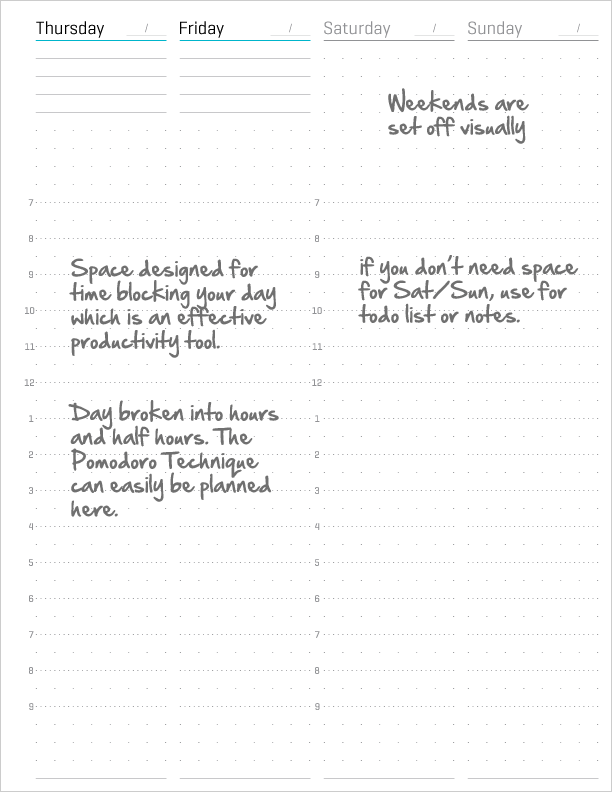 Thursday / Friday / Saturday / Sunday /
Weekends are
set off visually
7 7
8 8
Space designed for
time blocking your day
which is an effective
productivity tool.
if you don't need space
for Sat/Sun, use for
todo list or notes.
9 9
10 10
11 11
12 12
Day broken into hours
and half hours. The
Pomodoro Technique
can easily be planned
here.
1 1
2 2
3 3
4 4
5 5
6 6
7 7
8 8
9 9